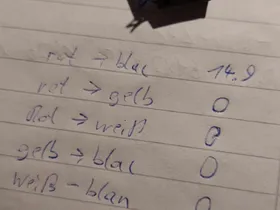 rot → blau 14.9
rot → gelb 0
Rot → weiß 0
gelb → blau 0
weiß - blau 0